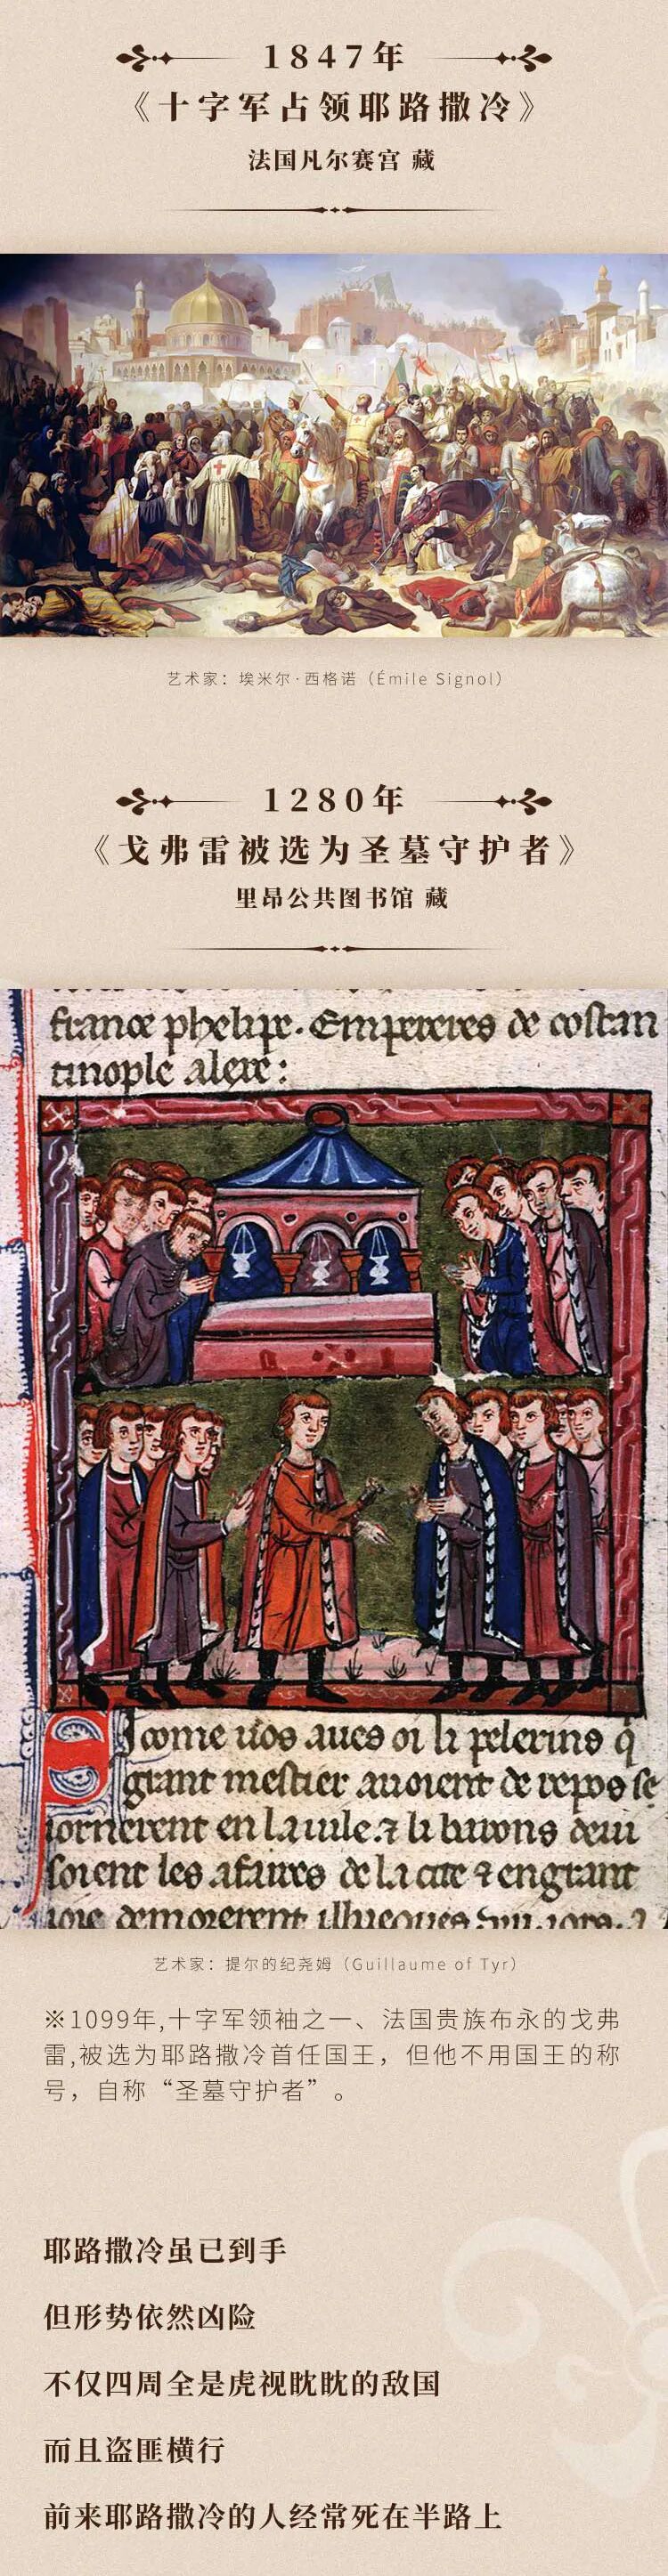 1847年
《十字军占领耶路撒冷》
法国凡尔赛宫 藏
艺术家：埃米尔·西格诺（Émile Signol）
1280年
《戈弗雷被选为圣墓守护者》
里昂公共图书馆 藏
france phelipe. Empereres de costan
tinople alexe:
Si come uos aues oi li pelerins q
grant mestier auoient de repos se
iornerent en la uile. ⁊ li barons deui
soient les afaires de la cite ⁊ en grant
ioie demorerent illueques
艺术家：提尔的纪尧姆（Guillaume of Tyr）
※1099年,十字军领袖之一、法国贵族布永的戈弗
雷,被选为耶路撒冷首任国王，但他不用国王的称
号，自称“圣墓守护者”。
耶路撒冷虽已到手
但形势依然凶险
不仅四周全是虎视眈眈的敌国
而且盗匪横行
前来耶路撒冷的人经常死在半路上